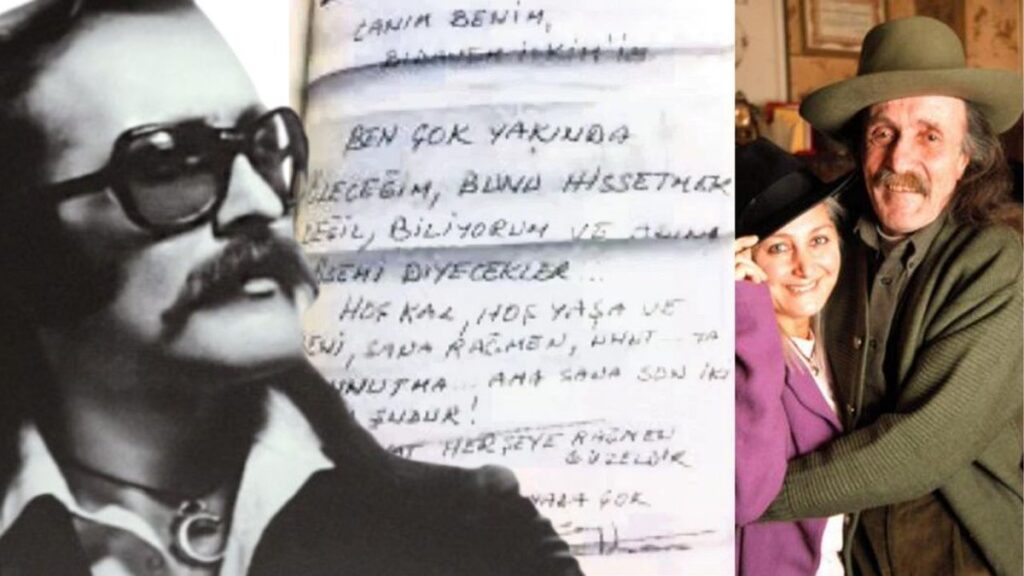 CANIM BENİM,
BİDANEM İLKİM'İM
BEN ÇOK YAKINDA
ÖLECEĞİM, BUNU HİSSETMEK
DEĞİL, BİLİYORUM VE
DİYECEKLER...
HOŞ KAL, HOŞ YAŞA VE
BENİ, SANA RAĞMEN, UNUT...
UNUTMA... AMA SANA SON
ŞUDUR!
HERŞEYE RAĞMEN
GÜZELDİR
ÇOK